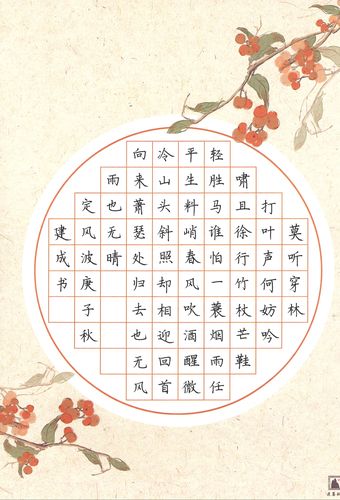 莫听穿林
打叶声何妨吟
啸且徐行竹杖芒鞋
轻胜马谁怕一蓑烟雨任
平生料峭春风吹酒醒微
冷山头斜照却相迎回首
向来萧瑟处归去也无风
雨也无晴
定风波庚子秋
建成书